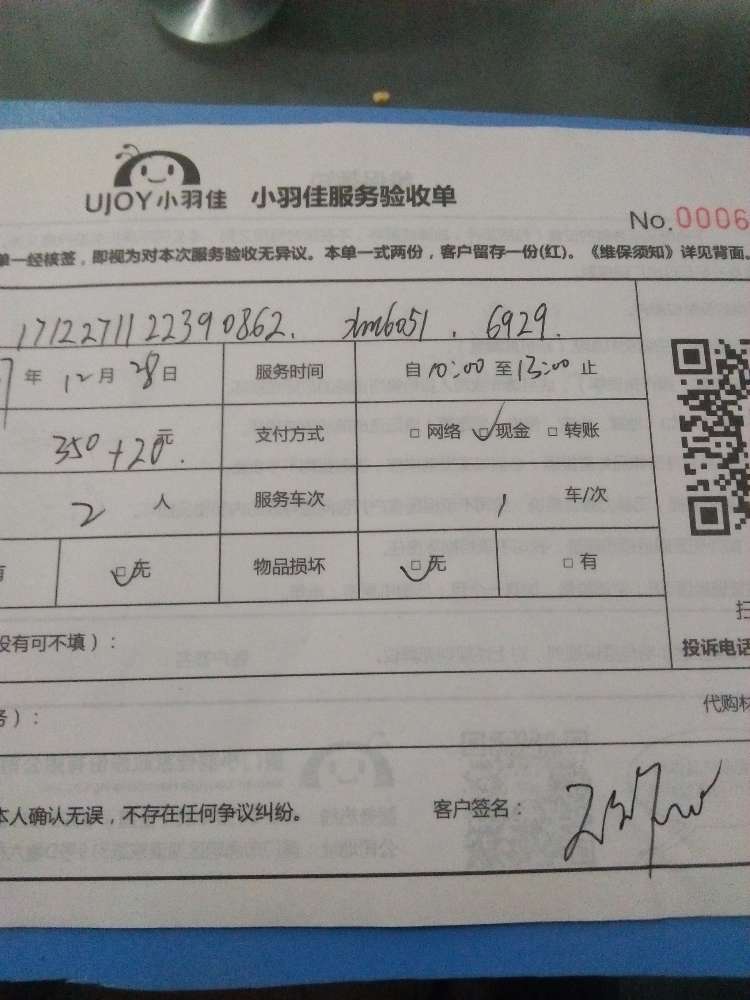 UJOY小羽佳 小羽佳服务验收单
No.0006
单一经核签，即视为对本次服务验收无异议。本单一式两份，客户留存一份(红)。《维保须知》详见背面。
1712271122390862. xm6051. 6929.
7年12月28日 服务时间 自10:00至13:00止
350+20元. 支付方式 □网络 ☑现金 □转账
2人 服务车次 1车/次
有 ☑无 物品损坏 ☑无 □有
没有可不填）：
投诉电话
务）：
代购材
本人确认无误，不存在任何争议纠纷。 客户签名：